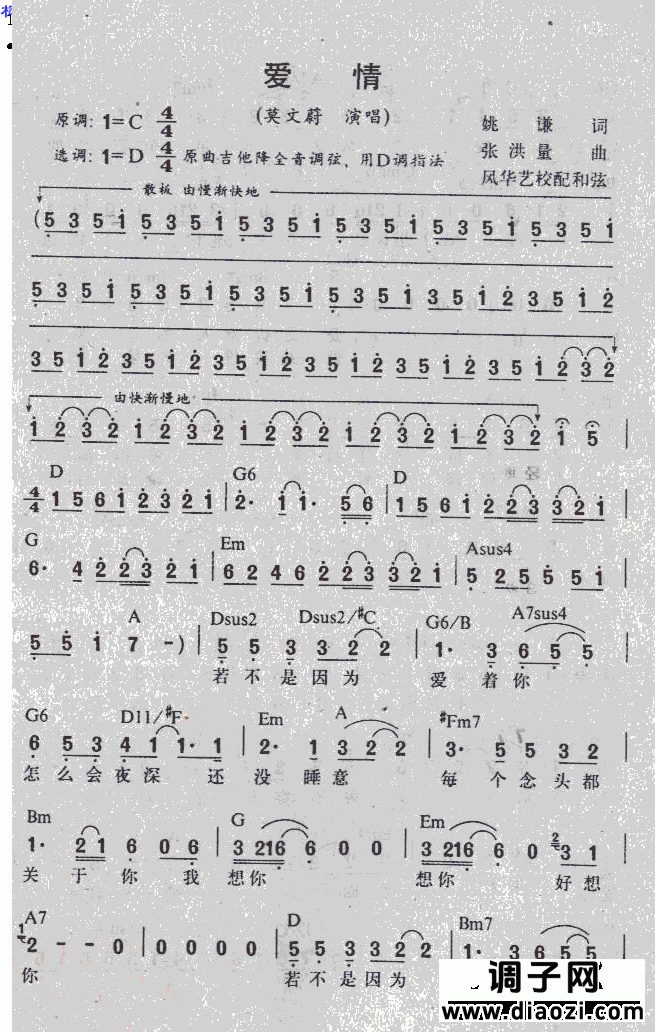 爱 情
(莫文蔚 演唱)
原调: 1=C 4/4
姚 谦 词
选调: 1=D 4/4 原曲吉他降全音调弦, 用D调指法
张 洪 量 曲
风华艺校配和弦
散板 由慢渐快地
(5 3 5 1 5 3 5 1 5 3 5 1 5 3 5 1 5 3 5 1 5 3 5 1
5 3 5 1 5 3 5 1 5 3 5 1 5 3 5 1 3 5 1 2 3 5 1 2
3 5 1 2 3 5 1 2 3 5 1 2 3 5 1 2 3 5 1 2 3 5 1 2 3 2
由快渐慢地
1 2 3 2 1 2 3 2 1 2 3 2 1 2 3 2 1 2 3 2 1 5 |
D G6 D
4/4 1 5 6 1 2 3 2 1 | 2· 1 1· 5 6 | 1 5 6 1 2 2 3 3 2 1 |
G Em Asus4
6· 4 2 2 3 2 1 | 6 2 4 6 2 2 3 3 2 1 | 5 2 5 5 5 1 |
A Dsus2 Dsus2/#C G6/B A7sus4
5 5 1 7 -) | 5 5 3 3 2 2 | 1· 3 6 5 5 |
若 不 是 因 为 爱 着 你
G6 D11/#F Em A #Fm7
6 5 3 4 1 1· 1 | 2· 1 3 2 2 | 3· 5 5 3 2 |
怎 么 会 夜 深 还 没 睡 意 每 个 念 头 都
Bm G Em
1· 2 1 6 0 6 | 3 216 6 0 0 | 3 216 6 0 2 3 1 |
关 于 你 我 想 你 想 你 好 想
A7 D Bm7
1 2 - - 0 | 0 0 0 0 | 5 5 3 3 2 2 | 1· 3 6 5 5
你 若 不 是 因 为
调子网
www.diaozi.com